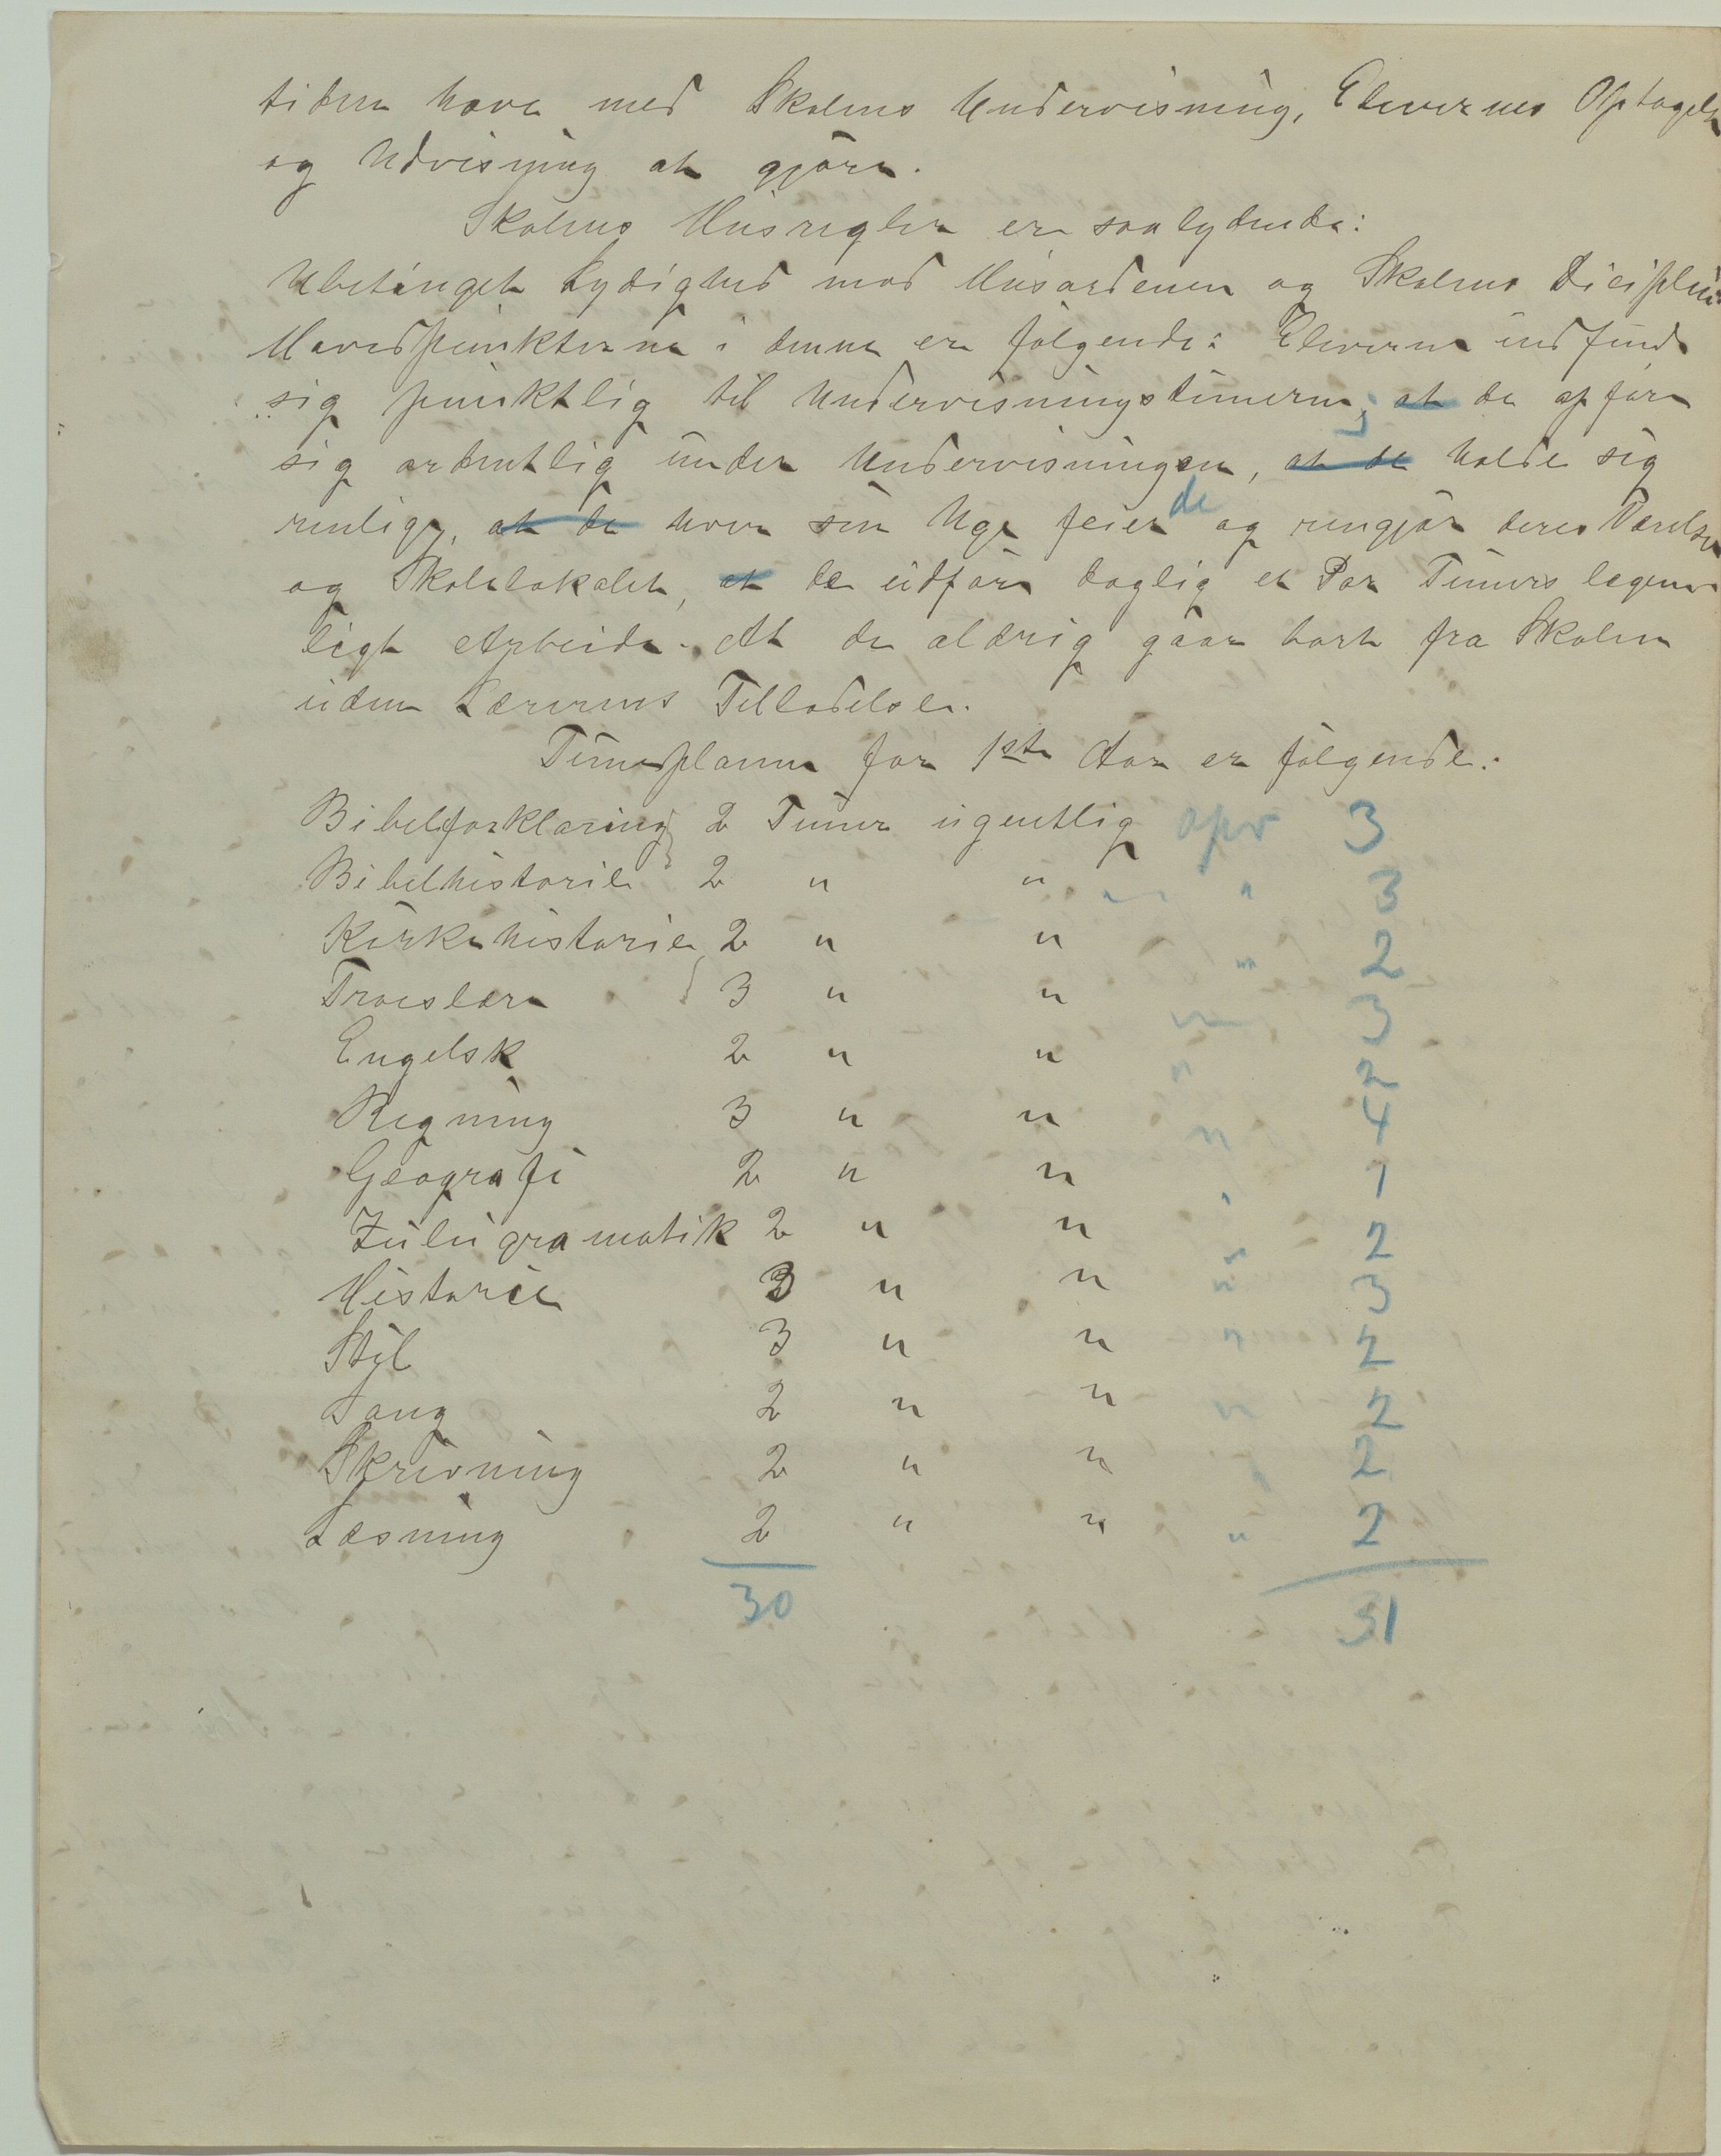 tiden have med Skolens Undervisning, Elevernes Optagelse
og Udvisning at gjøre.
Skolens Husregler er saalydende:
Ubetinget Lydighed mod Husordenen og Skolens Diciplin.
Hovedpunkterne i denne er følgende: Eleverne indfinde
sig punktlig til Undervisningstimerne, at de opføre
sig ordentlig under Undervisningen, at de holde sig
renlige, at de hver sin Uge feier de og rengjør deres Værelser
og Skolelokalet, at de udføre daglig et Par Timers legem-
ligt Arbeide. At de aldrig gaar bort fra Skolen
uden Lærernes Tilladelse.
Timeplanen for 1ste Aar er følgende:
Bibelforklaring 2 Timer ugentlig opr 3
Bibelhistorie 2 " " " 3
Kirkehistorie 2 " " " 2
Troeslære 3 " " " 3
Engelsk 2 " " " 2
Regning 3 " " " 4
Geografi 2 " " " 1
Zulugramatik 2 " " " 2
Historie 3 " " " 3
Stil 3 " " " 2
Sang 2 " " " 2
Skrivning 2 " " " 2
Læsning 2 " " " 2
30 31